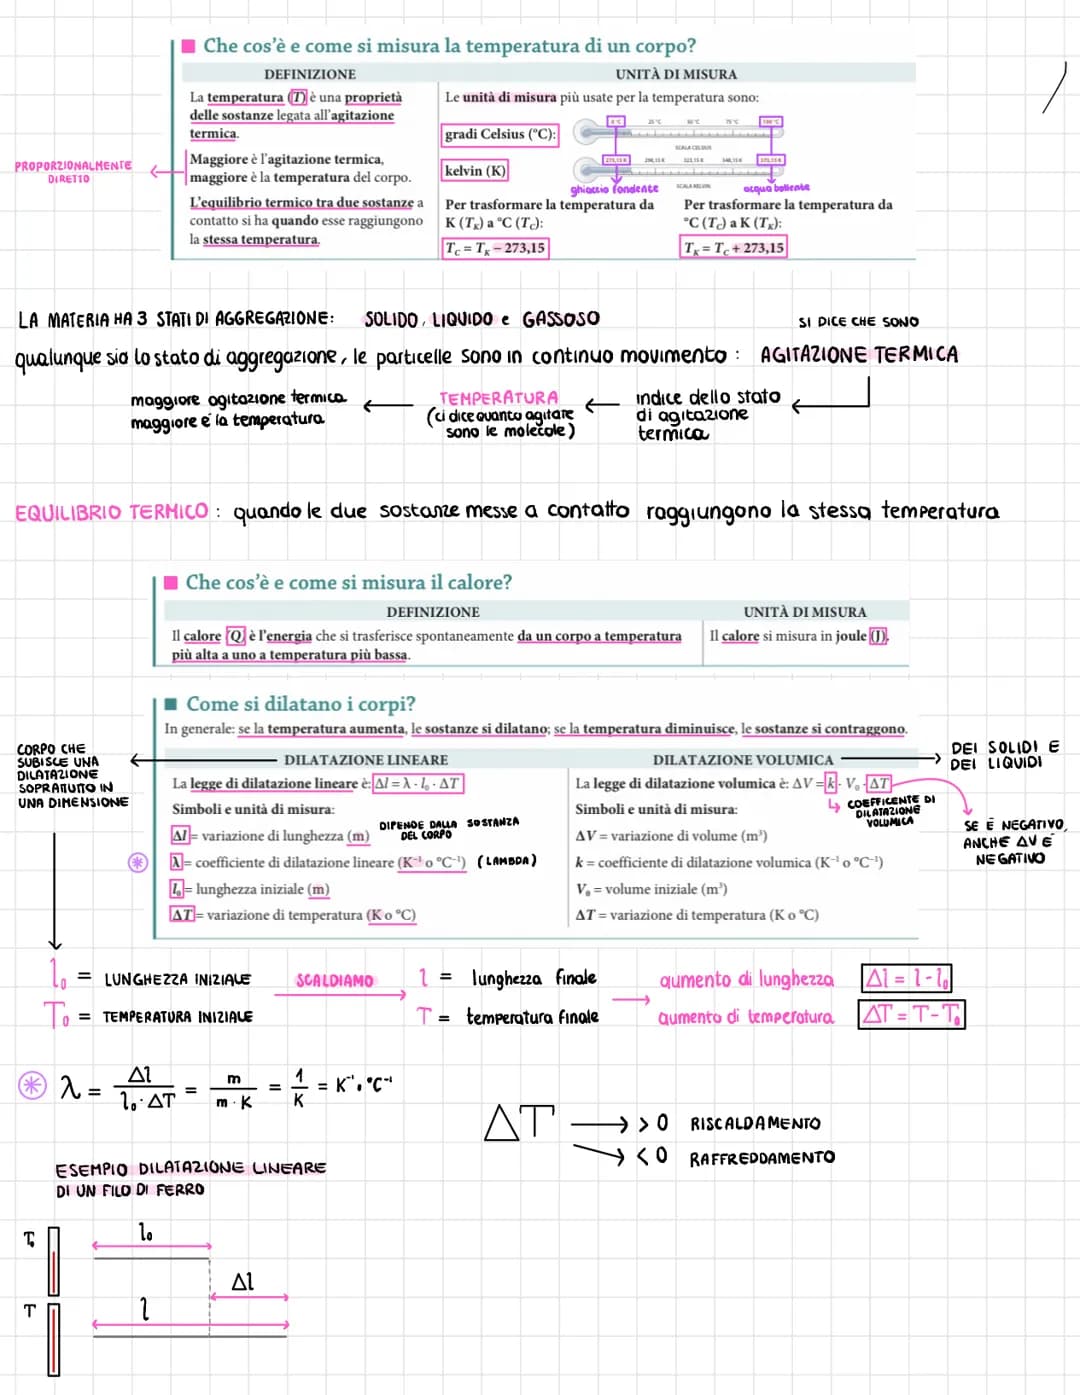 Che cos'è e come si misura la temperatura di un corpo?
DEFINIZIONE
UNITÀ DI MISURA
La temperatura (T) è una proprietà
delle sostanze legata all'agitazione
termica.
Maggiore è l'agitazione termica,
maggiore è la temperatura del corpo.
L'equilibrio termico tra due sostanze a
contatto si ha quando esse raggiungono
la stessa temperatura.
PROPORZIONALMENTE
DIRETTO
Le unità di misura più usate per la temperatura sono:
gradi Celsius (°C):
0 °C 25 °C 50 °C 75 °C 100 °C
SCALA CELSIUS
kelvin (K)
273,15 K 298,15 K 323,15 K 348,15 K 373,15 K
SCALA KELVIN
ghiaccio fondente
acqua bollente
Per trasformare la temperatura da
K (T_K) a °C (T_C):
T_C = T_K − 273,15
Per trasformare la temperatura da
°C (T_C) a K (T_K):
T_K = T_C + 273,15
LA MATERIA HA 3 STATI DI AGGREGAZIONE: SOLIDO, LIQUIDO e GASSOSO
SI DICE CHE SONO
qualunque sia lo stato di aggregazione, le particelle sono in continuo movimento : AGITAZIONE TERMICA
maggiore agitazione termica
maggiore è la temperatura
TEMPERATURA
(ci dice quanto agitate
sono le molecole)
indice dello stato
di agitazione
termica
EQUILIBRIO TERMICO : quando le due sostanze messe a contatto raggiungono la stessa temperatura
Che cos'è e come si misura il calore?
DEFINIZIONE
UNITÀ DI MISURA
Il calore (Q) è l'energia che si trasferisce spontaneamente da un corpo a temperatura
più alta a uno a temperatura più bassa.
Il calore si misura in joule (J).
Come si dilatano i corpi?
In generale: se la temperatura aumenta, le sostanze si dilatano; se la temperatura diminuisce, le sostanze si contraggono.
CORPO CHE
SUBISCE UNA
DILATAZIONE
SOPRATUTTO IN
UNA DIMENSIONE
DILATAZIONE LINEARE
La legge di dilatazione lineare è: Δl = λ · l₀ · ΔT
Simboli e unità di misura:
Δl = variazione di lunghezza (m)
DIPENDE DALLA SOSTANZA
DEL CORPO
* λ = coefficiente di dilatazione lineare (K⁻¹ o °C⁻¹) (LAMBDA)
l₀ = lunghezza iniziale (m)
ΔT = variazione di temperatura (K o °C)
DILATAZIONE VOLUMICA
DEI SOLIDI E
DEI LIQUIDI
La legge di dilatazione volumica è: ΔV = k · V₀ · ΔT
Simboli e unità di misura:
COEFFICENTE DI
DILATAZIONE
VOLUMICA
SE È NEGATIVO,
ANCHE ΔV È
NEGATIVO
ΔV = variazione di volume (m³)
k = coefficiente di dilatazione volumica (K⁻¹ o °C⁻¹)
V₀ = volume iniziale (m³)
ΔT = variazione di temperatura (K o °C)
l₀ = LUNGHEZZA INIZIALE SCALDIAMO l = lunghezza finale aumento di lunghezza Δl = l - l₀
T₀ = TEMPERATURA INIZIALE T = temperatura finale aumento di temperatura ΔT = T - T₀
* λ = Δl / l₀ · ΔT = m / m · K = 1 / K = K⁻¹ o °C⁻¹
ΔT > 0 RISCALDAMENTO
< 0 RAFFREDDAMENTO
ESEMPIO DILATAZIONE LINEARE
DI UN FILO DI FERRO
T₀ l₀
Δl
T l